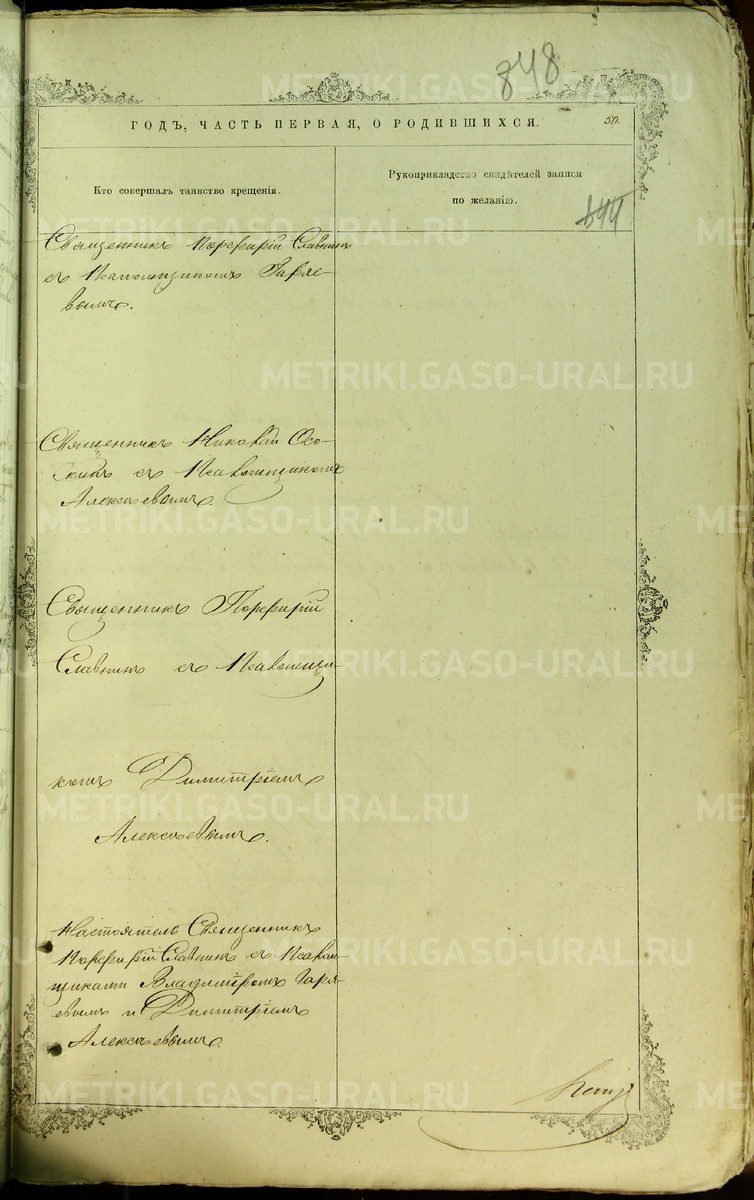 848
ГОДЪ, ЧАСТЬ ПЕРВАЯ, О РОДИВШИХСЯ.
50.
Кто совершалъ таинство крещенія.
Рукоприкладство свидѣтелей записи
по желанію.
Священникъ Порфирій Славнинъ
съ Псаломщикомъ
вымъ.
Священникъ Николай Осо-
кинъ съ Псаломщикомъ
Алексѣевымъ.
Священникъ Порфирій
Славнинъ съ Псаломщи-
комъ Димитріемъ
Алексѣевымъ.
Настоятель Священникъ
Порфирій Славнинъ съ Псалом-
щиками Владиміромъ
евымъ и Димитріемъ
Алексѣевымъ.
METRIKI.GASO-URAL.RU